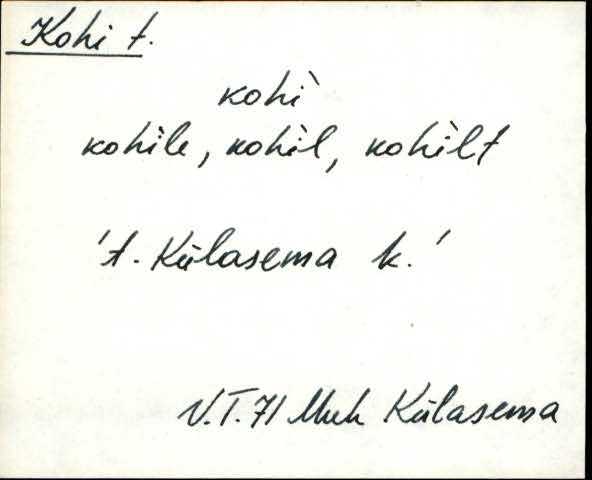 Kohi t.
kohì
kohìle, kohìl, kohìlt
't. Külasema k.'
V.T.71 Muh Külasema